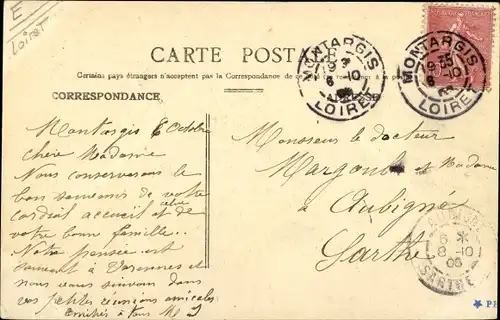 E
Loiret
CARTE POSTALE
Certains pays étrangers n'acceptent pas la Correspondance de ce
CORRESPONDANCE
MONTARGIS
6 -10
LOIRET
MONTARGIS
6 -10
LOIRET
Montargis 6 Octobre
chère Madame
Nous conservons le
bon souvenir de votre
cordial accueil et de celui
votre bonne famille..
Notre pensée est
souvent à Varennes et
nous vous suivons dans
vos petites réunions amicales
Amitiés à tous
Monsieur le docteur
et Madame
à Aubigné
Sarthe
6 *
8 -10
06
SARTHE